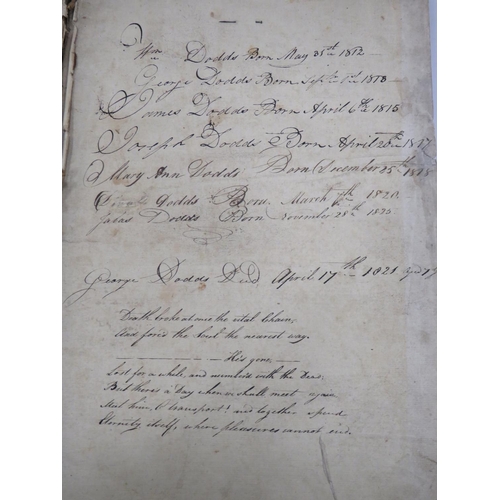 Wm Dodds Born May 25th 1812
George Dodds Born Septr 1st 1813
James Dodds Born April 6th 1815
Joseph Dodds Born April 20th 1817
Mary Ann Dodds Born December 25th 1818
Dodds Born March 7th 1820
Dodds Born November 28th 1825
George Dodds Died April 17th 1821 Aged
Death broke at once the vital Chain,
And forc'd the Soul the nearest way.
His gone,
Lost for a while, and number'd with the Dead,
But there's a Day when we shall meet again
Meet him, O transport! and together spend
Eternity itself, where pleasures cannot end.